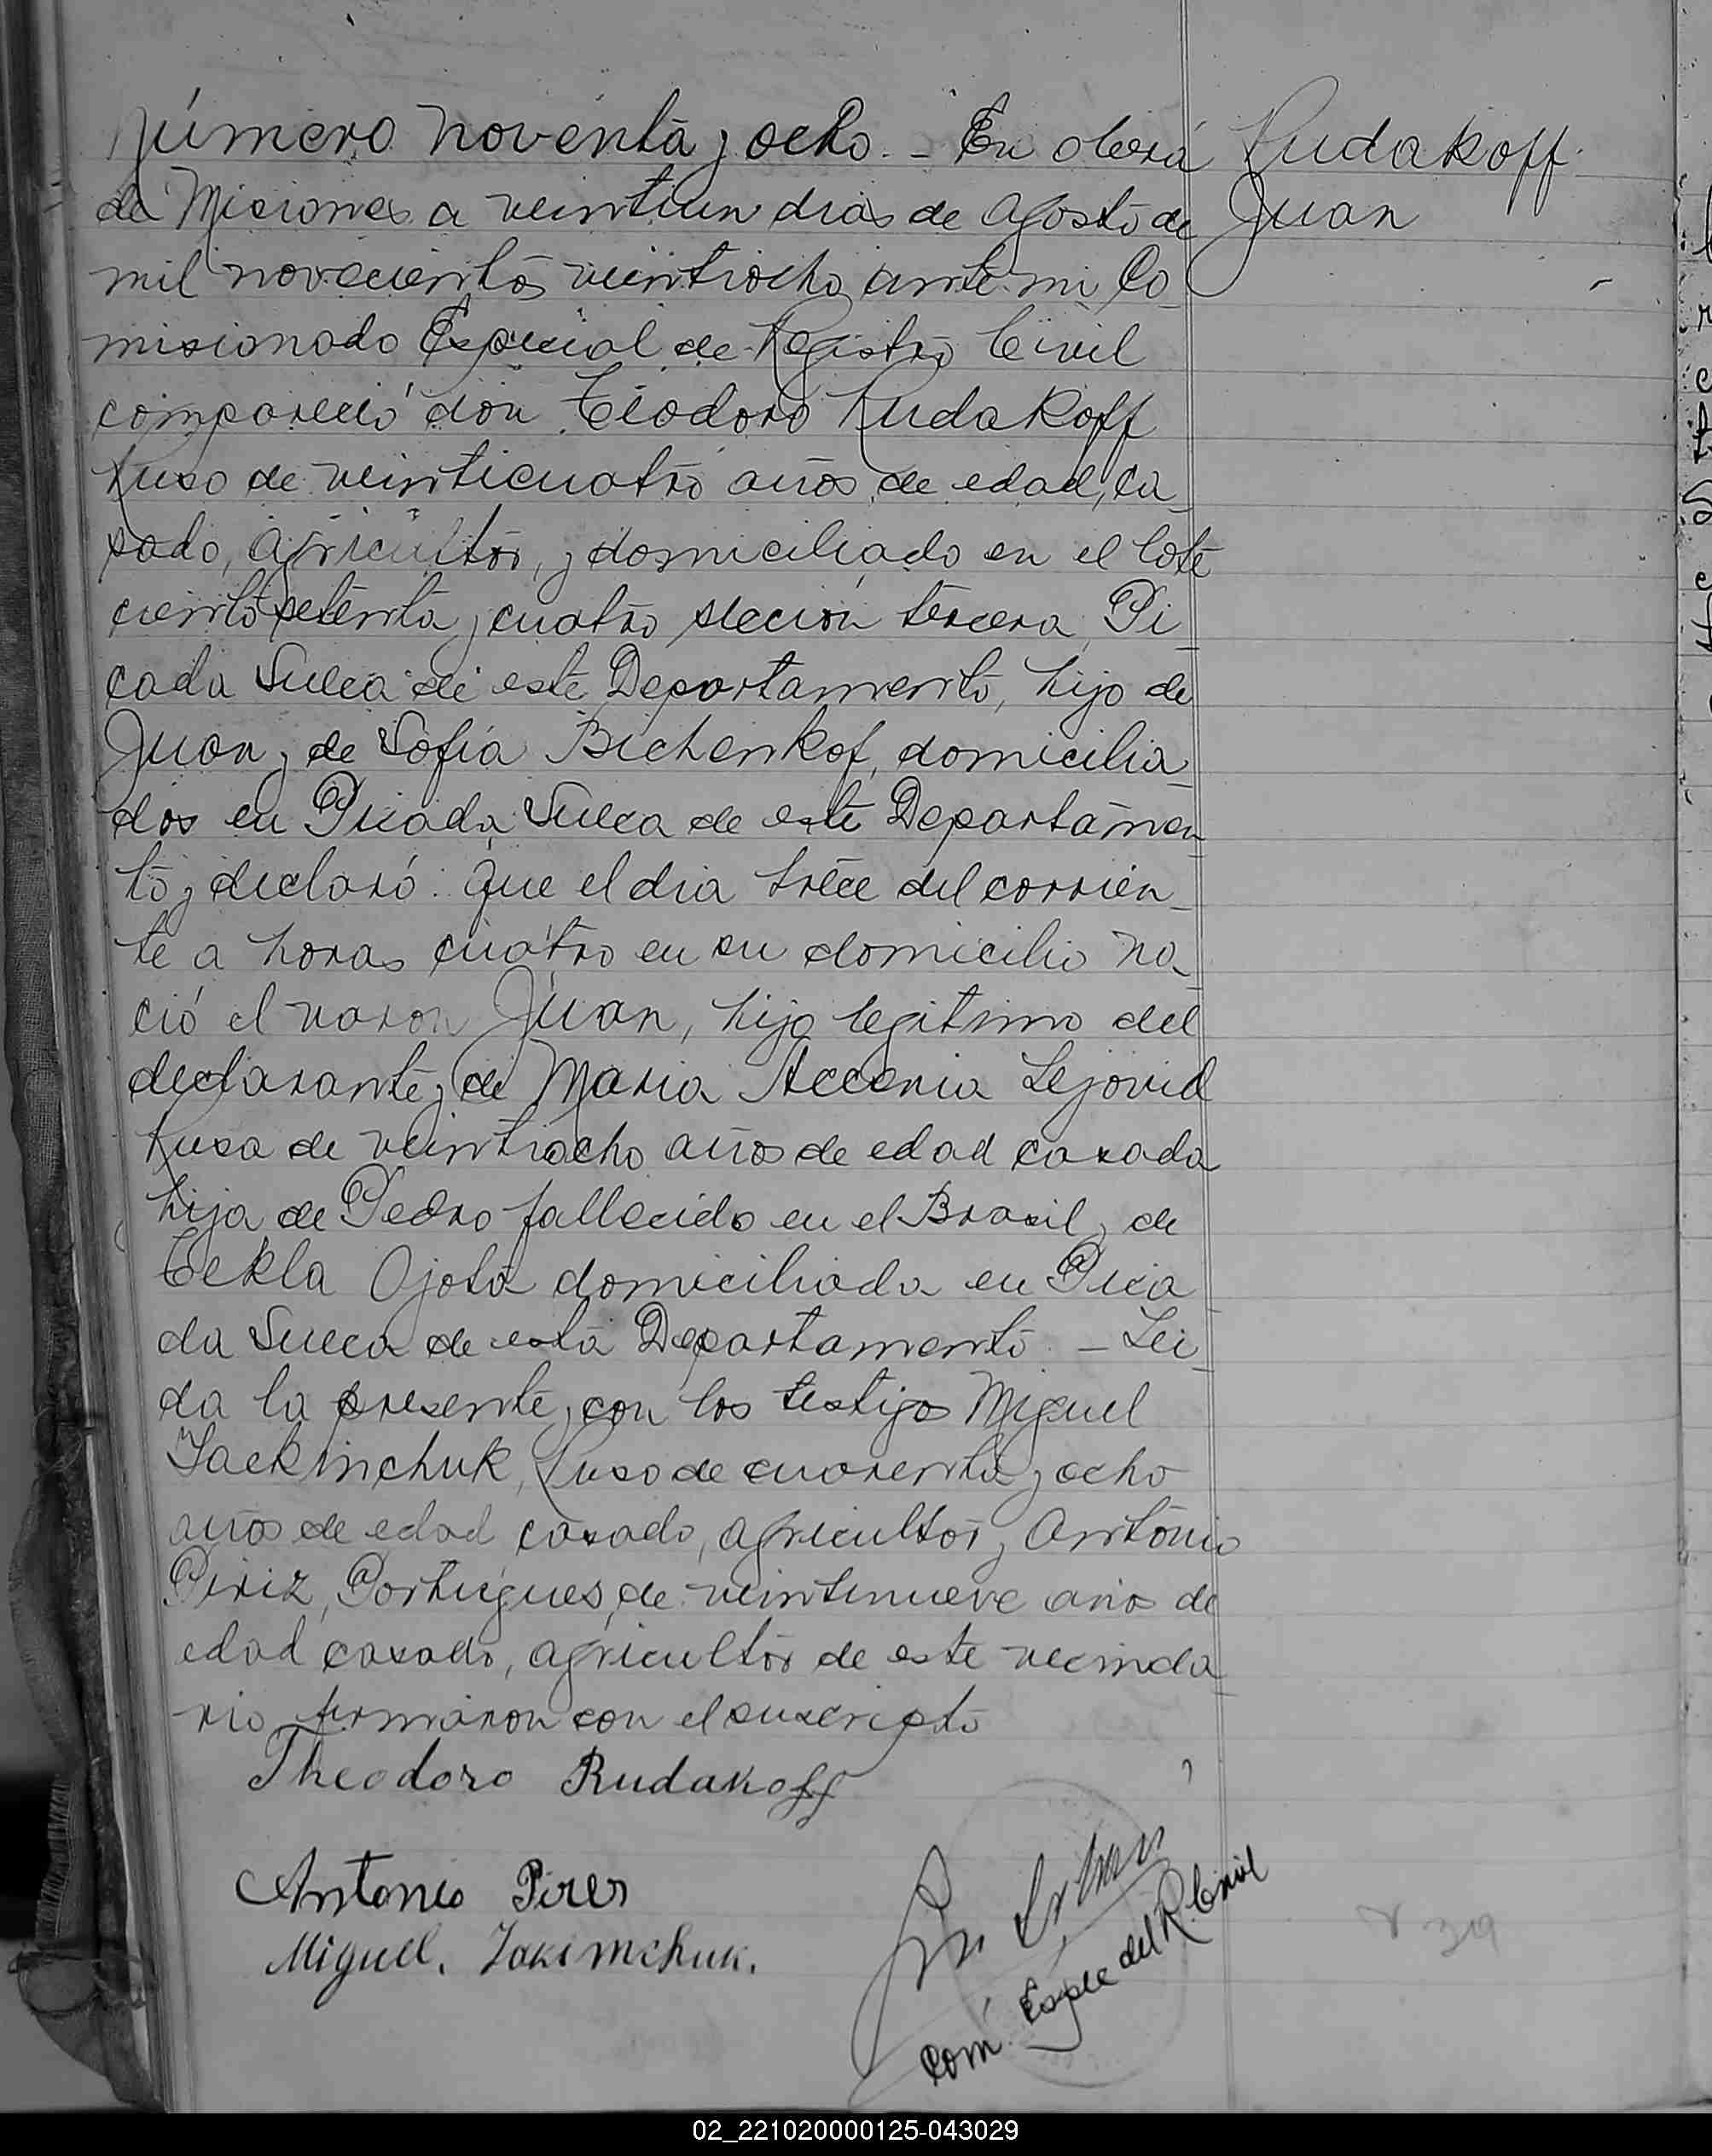 Número noventa y ocho. - En Oberá
de Misiones a veintiun dias de Agosto de
mil novecientos veintiocho ante mi Co
misionado Especial de Registro Civil
compareció don Teodoro Rudakoff
Ruso de veinticuatro años de edad, ca
sado, agricultor, y domiciliado en el lote
ciento setenta y cuatro sección tercera Pi
cada Sueca de este Departamento, hijo de
Juan y de Sofía Bichenkof, domicilia
dos en Picada Sueca de este Departamen
to y declaró: Que el dia trece del corrien
te a horas cuatro en su domicilio na
ció el varon Juan, hijo legitimo del
declarante y de Maria Accenia Lejovid
Rusa de veintiocho años de edad casada
hija de Pedro fallecido en el Brasil y de
Tekla Ojota domiciliada en Pica
da Sueca de esta Departamento. - Lei
da la presente, con los testigos Miguel
Jackinchuk, Ruso de cuarenta y ocho
años de edad casado, agricultor y Antonio
Piriz, Portugues, de veintinueve años de
edad casado, agricultor de este vecinda
rio firmaron con el suscripto
Rudakoff
Juan
Theodoro Rudakoff
Antonio Pires
Miguel. Jakimchuk.
Com. Espec del R. Civil
02_221020000125-043029